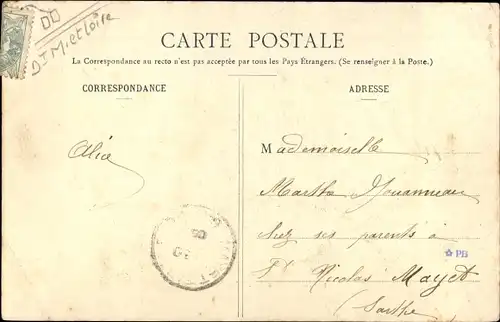 Dt M et Loire
CARTE POSTALE
La Correspondance au recto n'est pas acceptée par tous les Pays Étrangers. (Se renseigner à la Poste.)
CORRESPONDANCE
ADRESSE
Alice
Mademoiselle
Marthe Jouanneau
chez ses parents à
PB
St Nicolas Mayet
(Sarthe